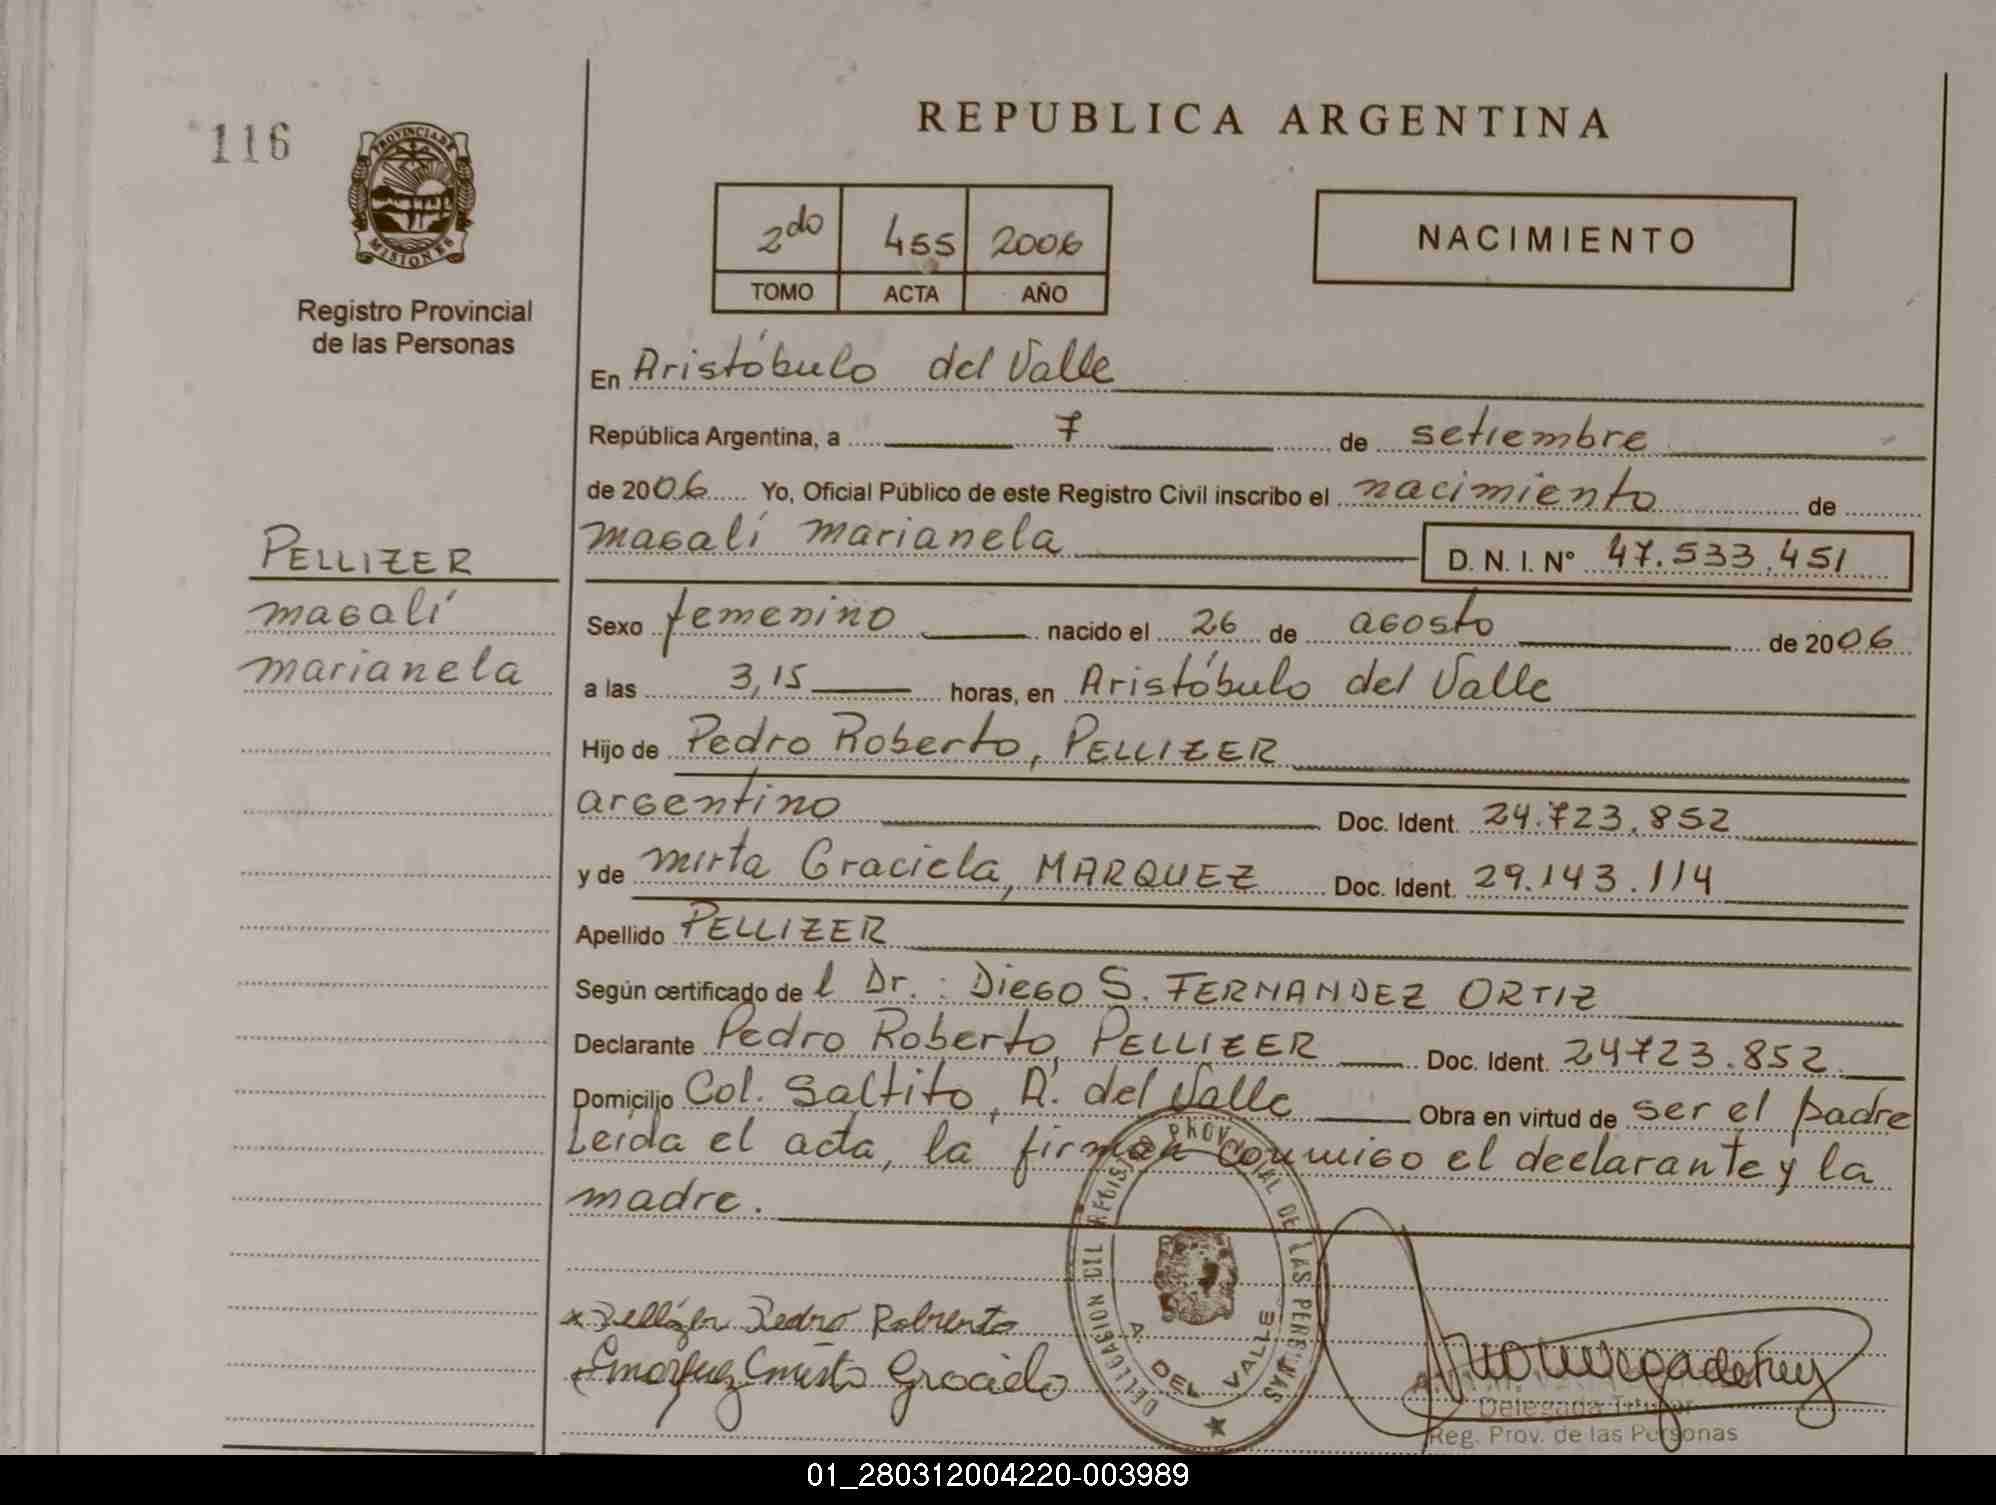 116
PROVINCIA DE
MISIONES
Registro Provincial
de las Personas
REPUBLICA ARGENTINA
2do 455 2006
TOMO ACTA AÑO
NACIMIENTO
En Aristóbulo del Valle
República Argentina, a 7 de setiembre
de 2006 Yo, Oficial Público de este Registro Civil inscribo el nacimiento de
magalí marianela D. N. I. Nº 47.533.451
PELLIZER
magalí
marianela
Sexo femenino nacido el 26 de agosto de 2006
a las 3,15 horas, en Aristóbulo del Valle
Hijo de Pedro Roberto, PELLIZER
argentino Doc. Ident. 24.723.852
y de mirta Graciela, MARQUEZ Doc. Ident. 29.143.114
Apellido PELLIZER
Según certificado de l Dr.: Diego S. FERNANDEZ ORTIZ
Declarante Pedro Roberto, PELLIZER Doc. Ident. 24723.852
Domicilio Col. Saltito, A. del Valle Obra en virtud de ser el padre
Leída el acta, la firman conmigo el declarante y la
madre.
DELEGACION DEL REGISTRO PROVINCIAL DE LAS PERSONAS
A. DEL VALLE
x Pellízer Pedro Roberto
Marquez mirta Graciela
Delegada Titular
Reg. Prov. de las Personas
01_280312004220-003989